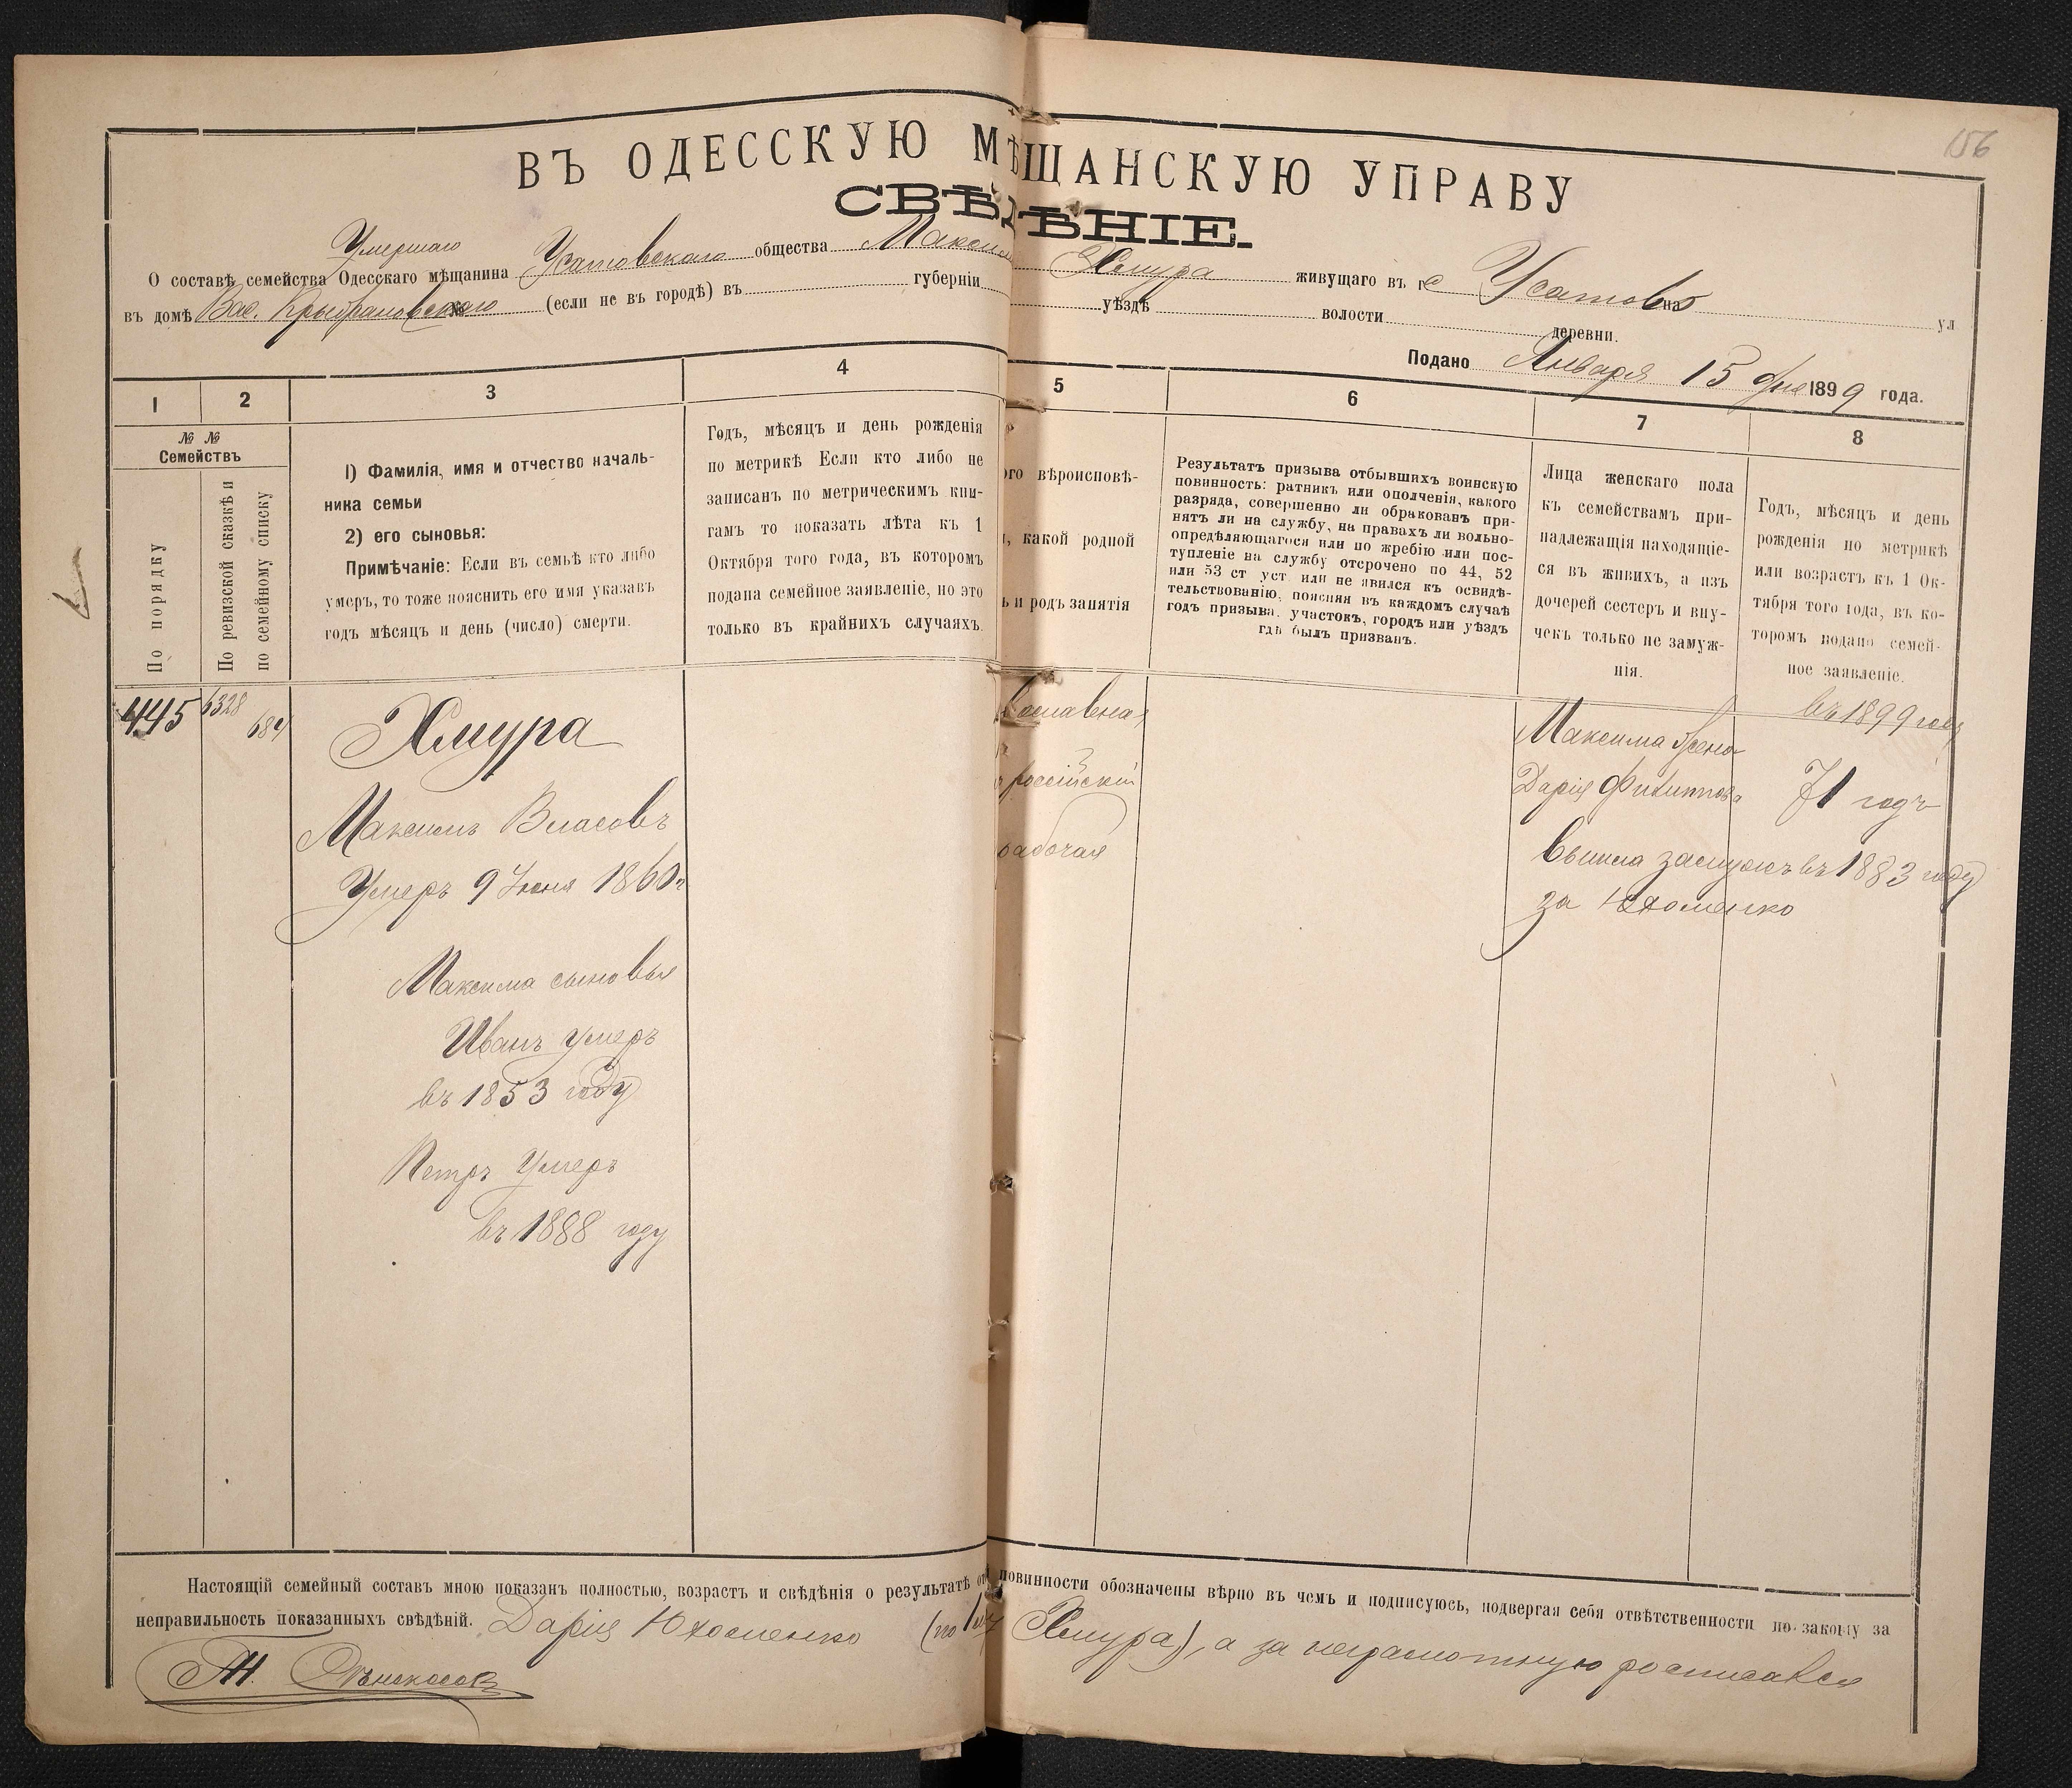 156
ВЪ ОДЕССКУЮ МѢЩАНСКУЮ УПРАВУ
СВѢДѢНІЕ.
Умершаго
О составѣ семейства Одесскаго мѣщанина Усатовскаго общества Максим Хмура живущаго въ г с Усатово на ул
въ домѣ Вас. Крыжановскаго (если не въ городѣ) въ губерніи уѣздѣ волости деревни.
Подано Января 15 дня 1899 года.
1 2 3 4 5 6 7 8
№ №
Семействъ
По порядку
По ревизской сказкѣ и
по семейному списку
1) Фамилія, имя и отчество началь-
ника семьи
2) его сыновья:
Примѣчаніе: Если въ семьѣ кто либо
умеръ, то тоже пояснить его имя указавъ
годъ мѣсяцъ и день (число) смерти.
Годъ, мѣсяцъ и день рожденія
по метрикѣ Если кто либо не
записанъ по метрическимъ кни-
гамъ то показать лѣта къ 1
Октября того года, въ которомъ
подана семейное заявленіе, но это
только въ крайнихъ случаяхъ.
ого вѣроисповѣ-
, какой родной
ь и родъ занятія
Результатъ призыва отбывшихъ воинскую
повинность: ратникъ или ополченія, какого
разряда, совершенно ли обракованъ при-
нятъ ли на службу, на правахъ ли вольно-
опредѣляющагося или по жребію или пос-
тупленіе на службу отсрочено по 44, 52
или 53 ст уст. или не явился къ освидѣ-
тельствованію, поясняя въ каждомъ случаѣ
годъ призыва, участокъ, городъ или уѣздъ
гдѣ былъ призванъ.
Лица женскаго пола
къ семействамъ при-
надлежащія находящіе-
ся въ живихъ, а изъ
дочерей сестеръ и вну-
чекъ только не замуж-
нія.
Годъ, мѣсяцъ и день
рожденія по метрикѣ
или возрастъ къ 1 Ок-
тября того года, въ ко-
торомъ подано семей-
ное заявленіе.
445 6328
684
Хмура
Максимъ Власовъ
Умеръ 9 Іюня 1860 г
Максима сыновья
Иванъ умеръ
въ 1853 году
Петръ Умеръ
въ 1888 году
вославная
россійскій
рабочая
въ 1899 году
Максима жена
Дарія Филиппова 71 годъ
вышла замужъ въ 1883 году
за Юхоменко
Настоящій семейный составъ мною показанъ полностью, возрастъ и свѣдѣнія о результатѣ от повинности обозначены вѣрно въ чемъ и подписуюсь, подвергая себя отвѣтственности по закону за
неправильность показанныхъ свѣдѣній. Дарія Юхоменко (по Хмура), а за неграмотную росписался